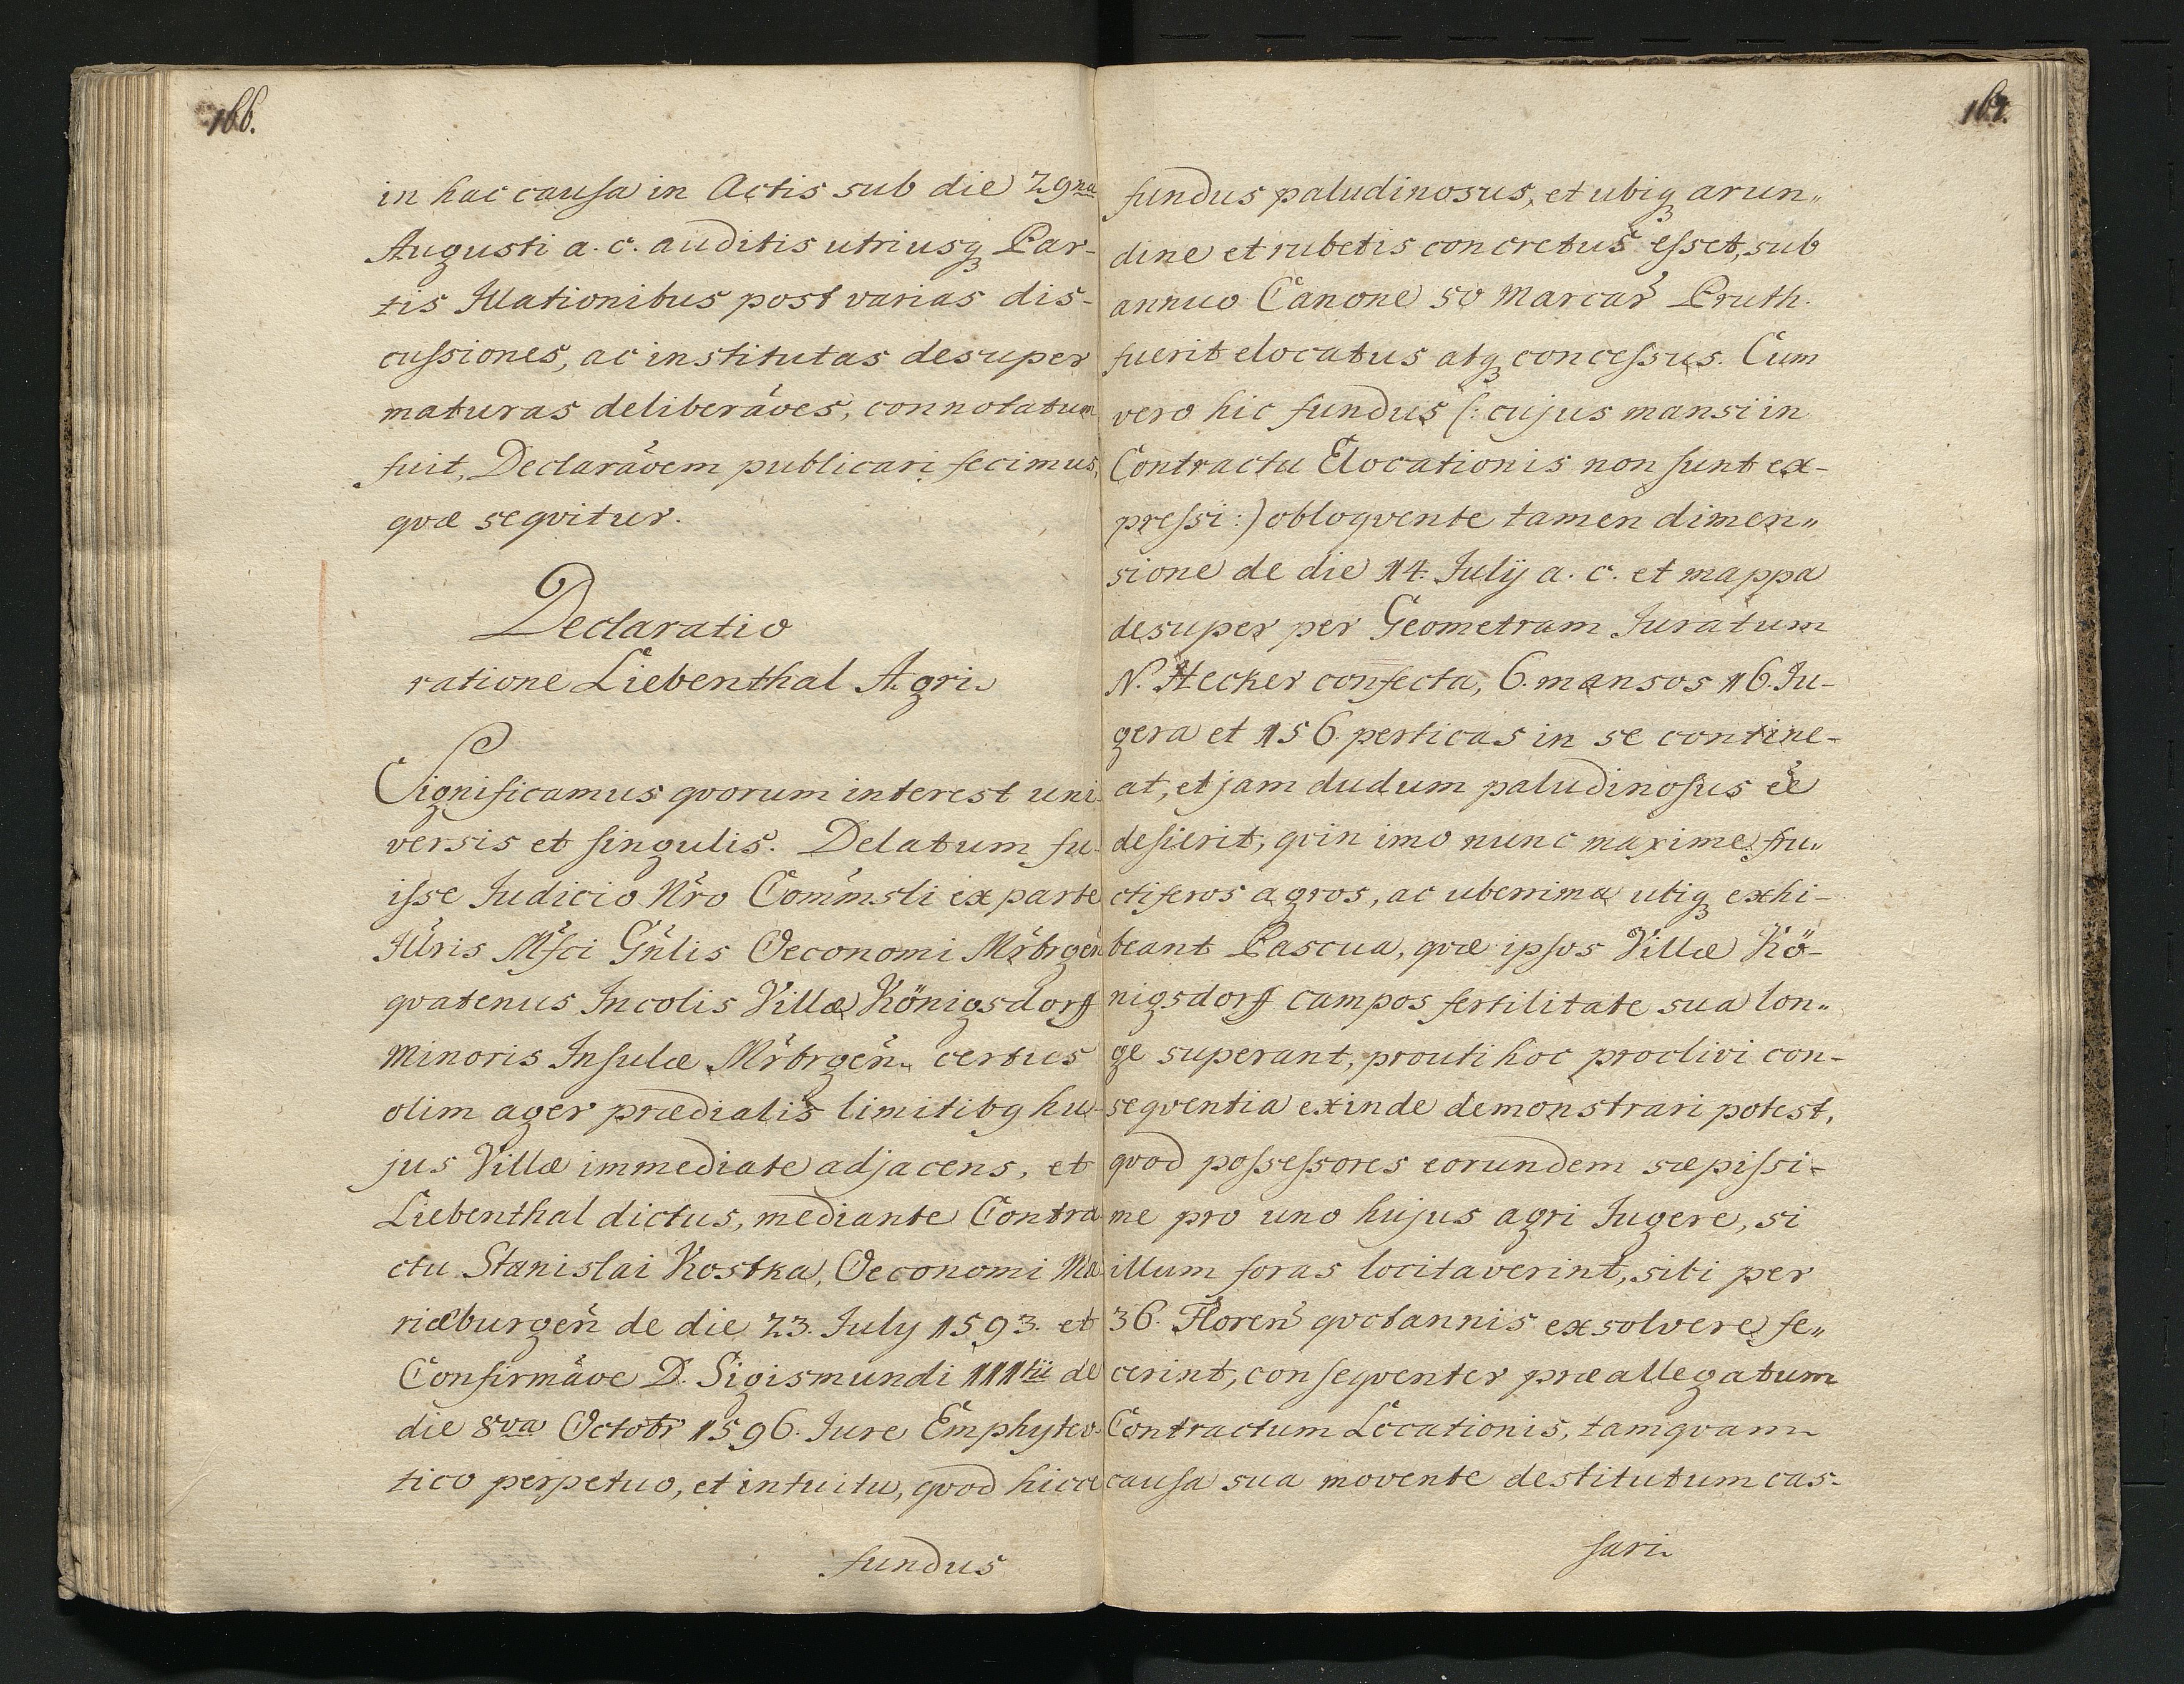 166.
in hac causa in Actis sub die 29na
Augusti a. c. auditis utriusq Par-
tis Illationibus post varias dis-
cussiones, ac institutas desuper
maturas deliberaoes, connotatum
fuit, Declaraoem publicari fecimus,
qvæ seqvitur.
Declaratio
ratione Liebenthal Agri.
Significamus qvorum interest uni-
versis et singulis. Delatum fu-
isse Judicio Nro Commsli ex parte
Illris Mfci Gnlis Oeconomi Mrbrgen
qvatenus Incolis Villæ Königsdorff
minoris Insulæ Mrbrgen. certus
olim ager prædialis limitibq hu-
jus Villæ immediate adjacens, et
Liebenthal dictus, mediante Contra-
ctu Stanislai Kostka, Oeconomi Ma-
riæburgen de die 23. July 1593. et
Confirmaoe D. Sigismundi IIItii de
die 8va Octobr 1596. Jure Emphytev-
tico perpetuo, et intuitu, qvod hicce
fundus
167.
fundus paludinosus, et ubiq arun„
dine et rubetis concretus esset, sub
annuo Canone 50 Marcar Pruth.
fuerit elocatus atq concessus. Cum
vero hic fundus (: cujus mansi in
Contractu Elocationis non sunt ex-
pressi :) obloqvente tamen dimen„
sione de die 14. Julÿ a. c. et mappa
desuper per Geometram Juratum
N. Hecker confecta, 6. mansos 16. Ju-
gera et 156. perticas in se contine-
at, et jam dudum paludinosus ee
desierit, qvin imo nunc maxime fru„
ctiferos agros, ac uberrima ubiq exhi-
beant Pascua, qvæ ipsos Villæ Kö-
nigsdorff campos fertilitate sua lon„
ge superant, prouti hoc proclivi con-
seqventia exinde demonstrari potest,
qvod possessores eorundem sæpissi-
me pro uno hujus agri Jugere, si
illum foras locitaverint, sibi per
36. Floren qvotannis exsolvere fe„
cerint, conseqventer præallegatum
Contractum Locationis, tamqvam
causa sua movente destitutum cas-
sari